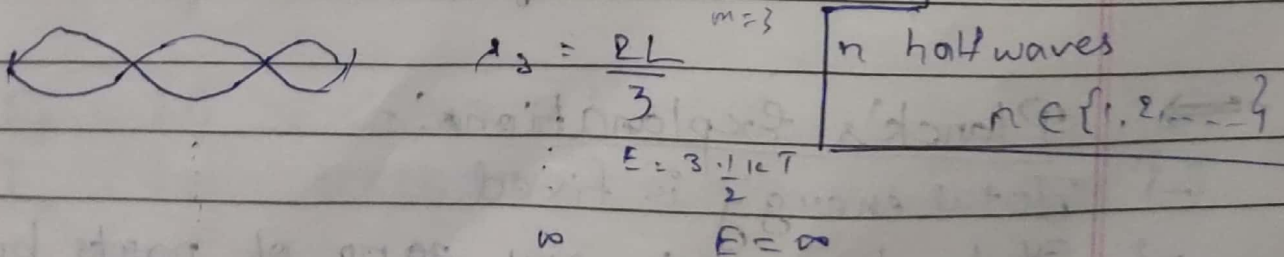 m=3
λ3 = 2L/3
n half waves
n ∈ {1, 2, ......}
E = 3 · 1/2 kT
∞ E = ∞